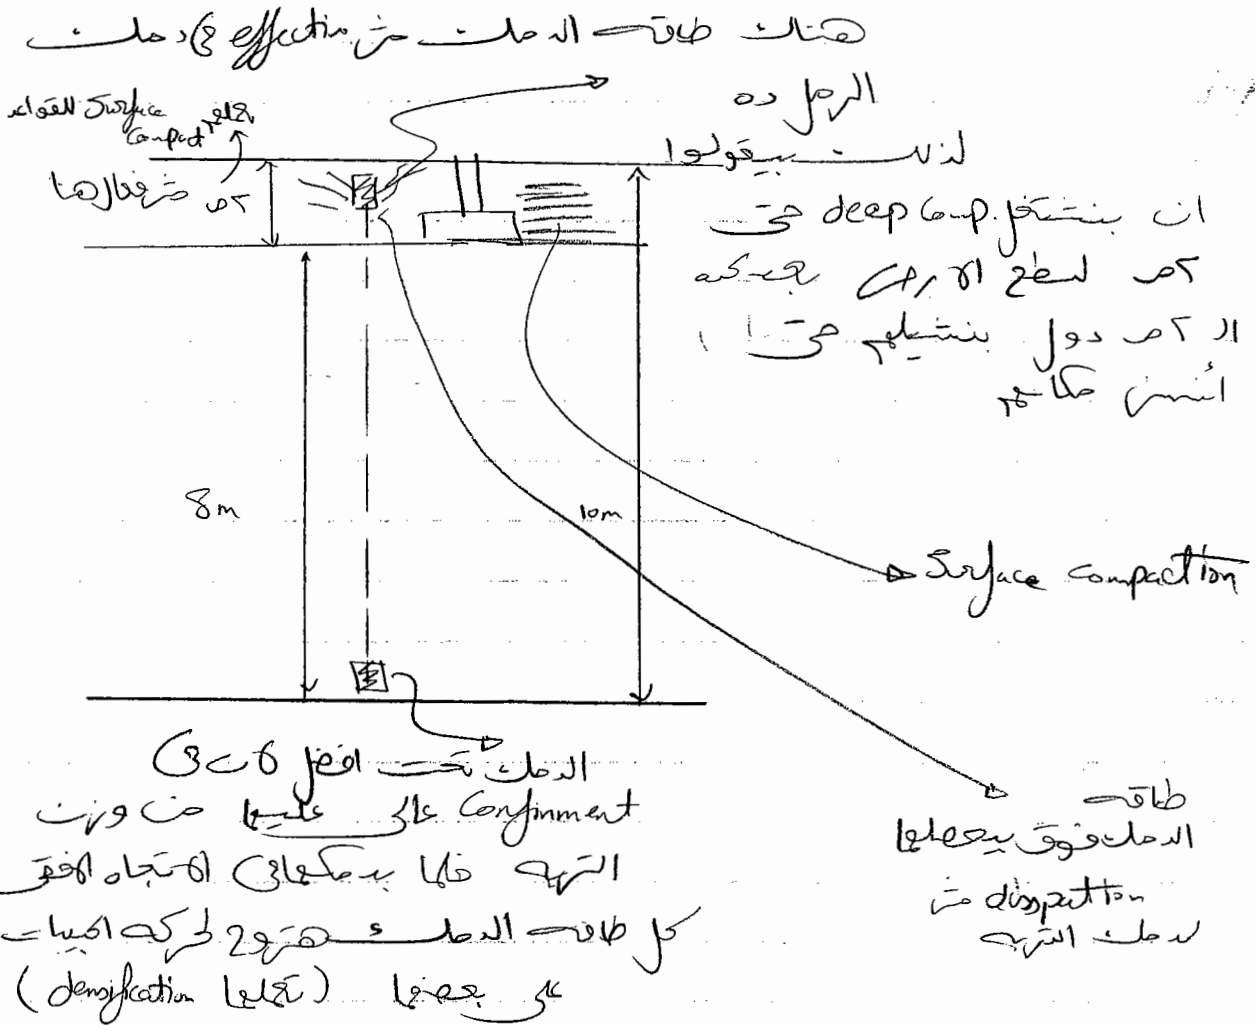 هناك طاقه الدمك مش effective في دمك
الرمل ده
لذلك بيقولوا
ان بنشتغل deep Comp. حتى
٢م لسطح الارض بعد كده
الـ ٢م دول بنشيلهم حتى
أسس مكانهم
للقواعد Surface
Compact
٢م
8m
10m
Surface Compaction
الدمك تحت افضل لان في
Confinment عالى عليها من وزن
التربه فلما بدمكها في الاتجاه الافقى
كل طاقه الدمك هتروح لحركه الحبيبات
على بعضها (تخليها densification)
طاقه
الدمك فوق بيحصلها
disspation مش
لدمك التربه